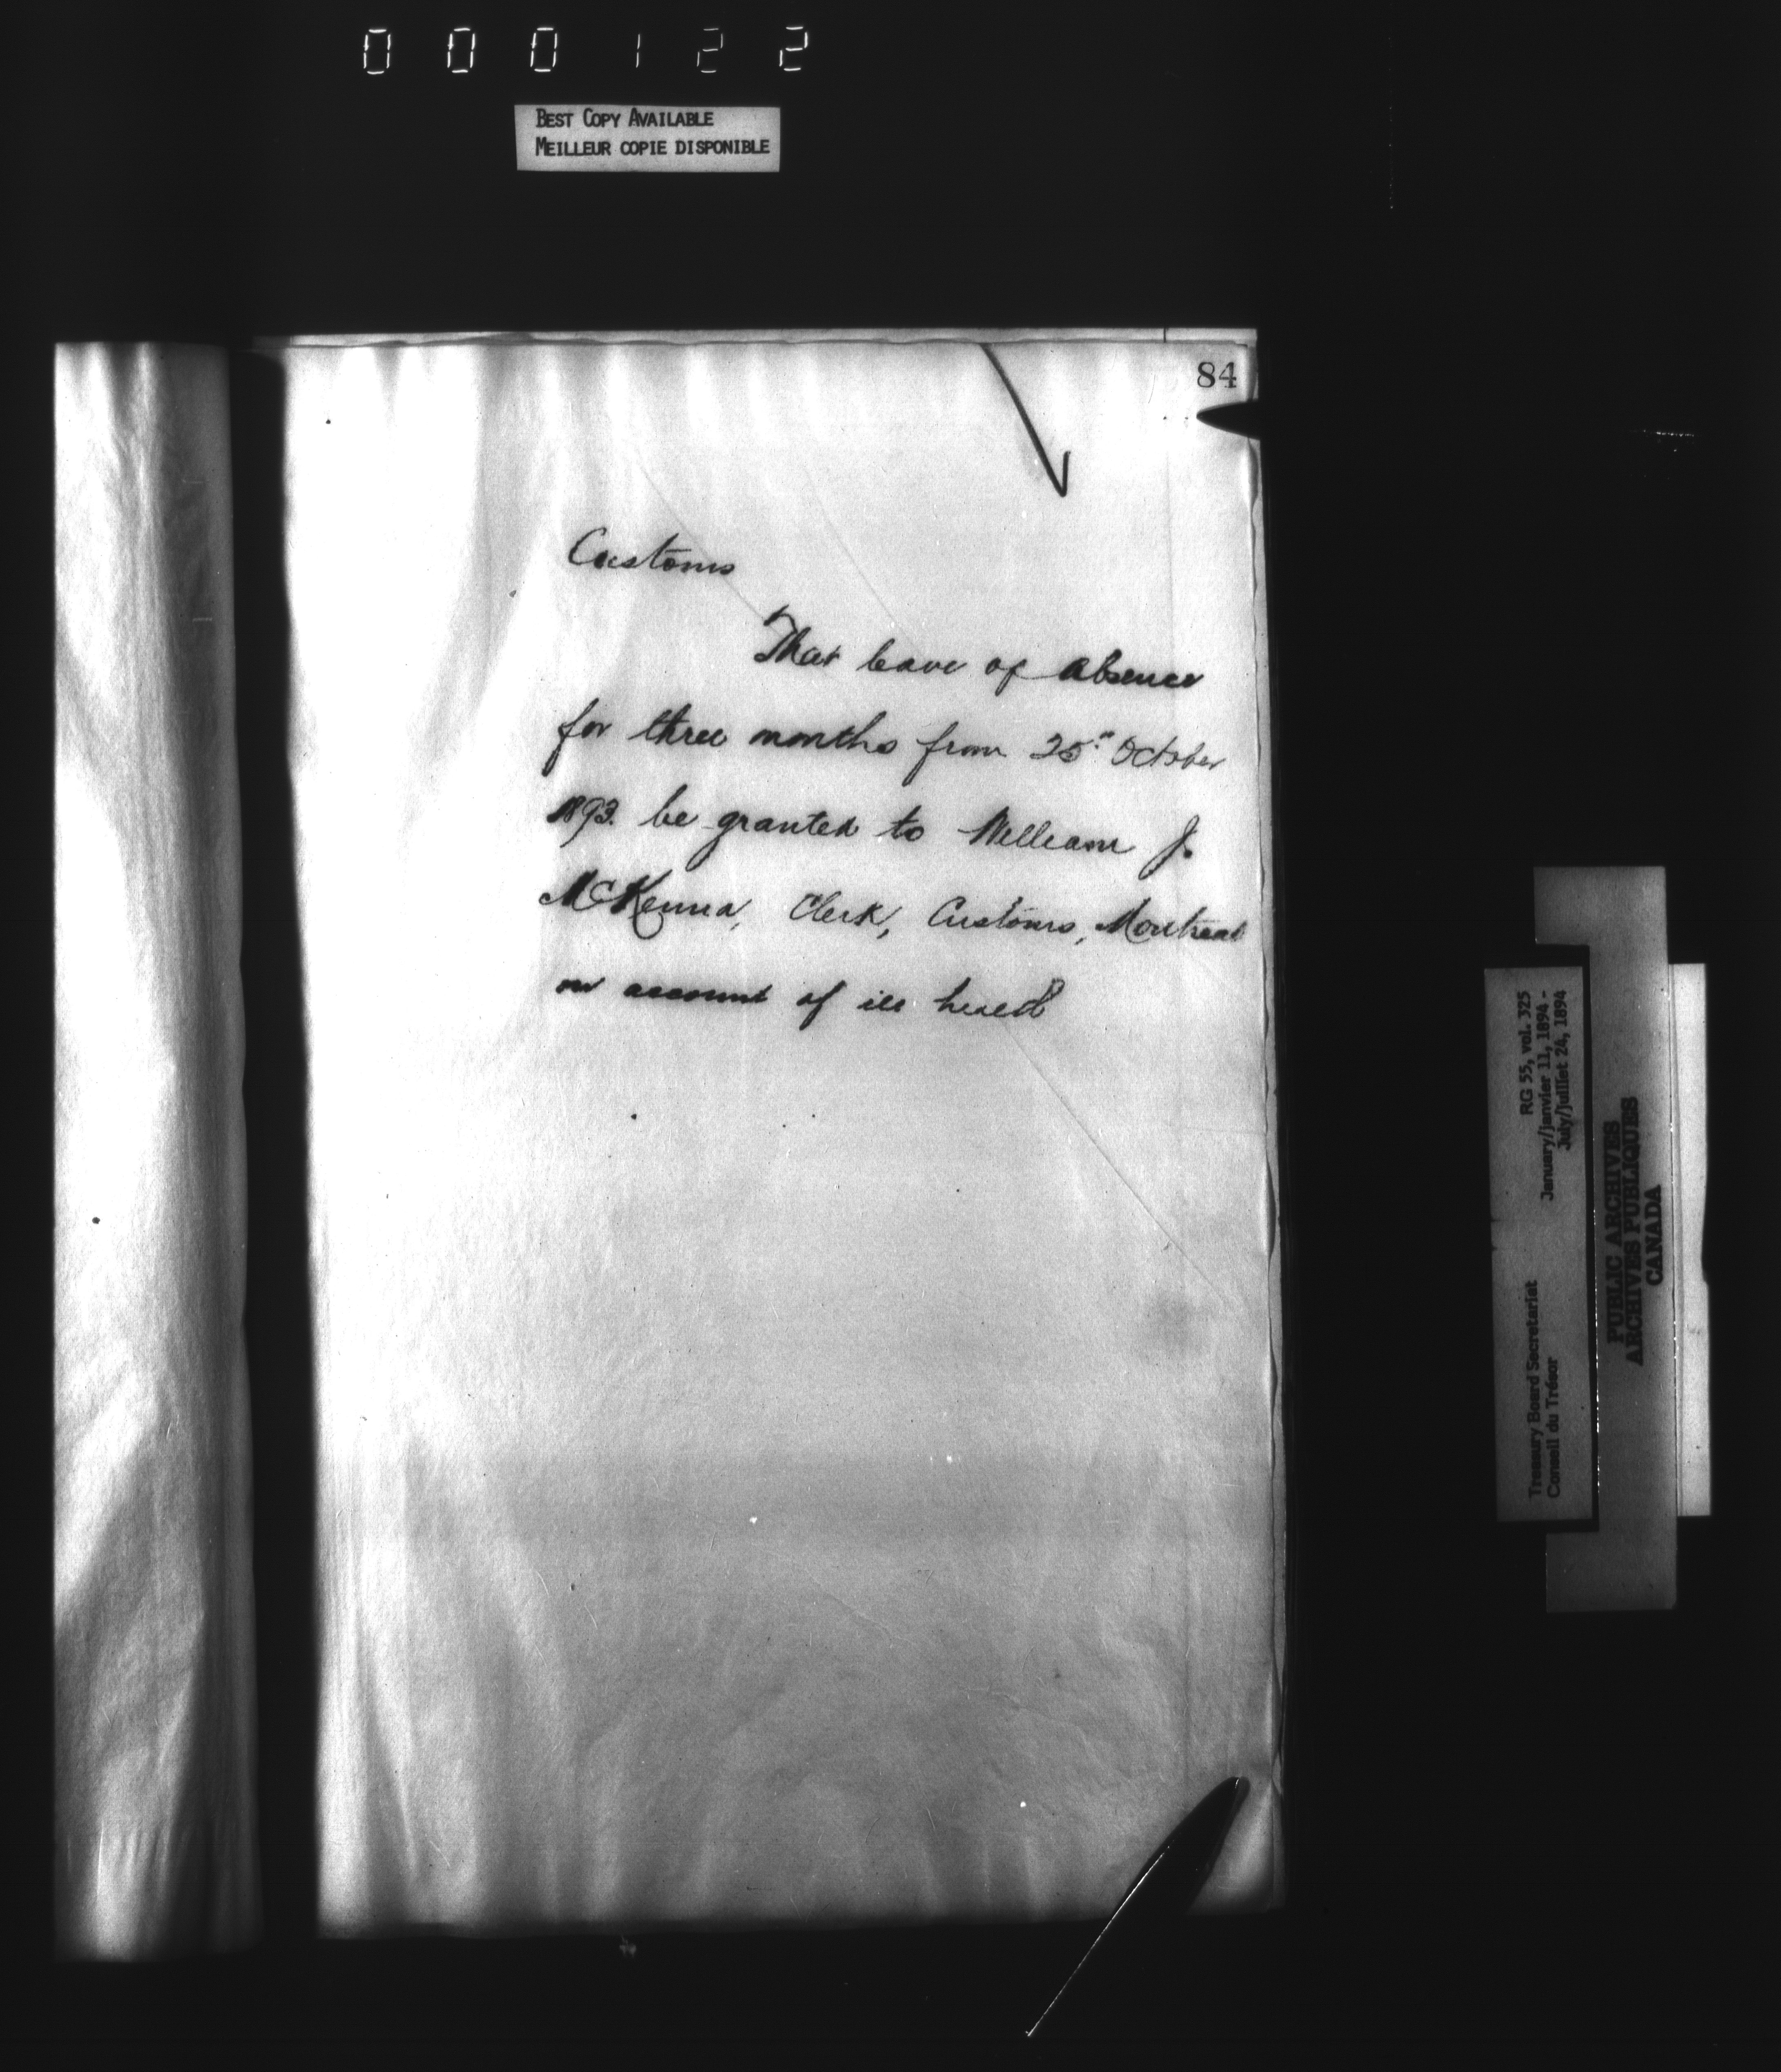 000122
BEST COPY AVAILABLE
MEILLEUR COPIE DISPONIBLE
84
Customs
That leave of absence
for three months from 25th October
1893. be granted to William J.
McKenna, Clerk, Customs, Montreal
on account of ill health
Treasury Board Secretariat RG 55, vol. 325
Conseil du Trésor January/janvier 11, 1894 -
July/juillet 24, 1894
PUBLIC ARCHIVES
ARCHIVES PUBLIQUES
CANADA